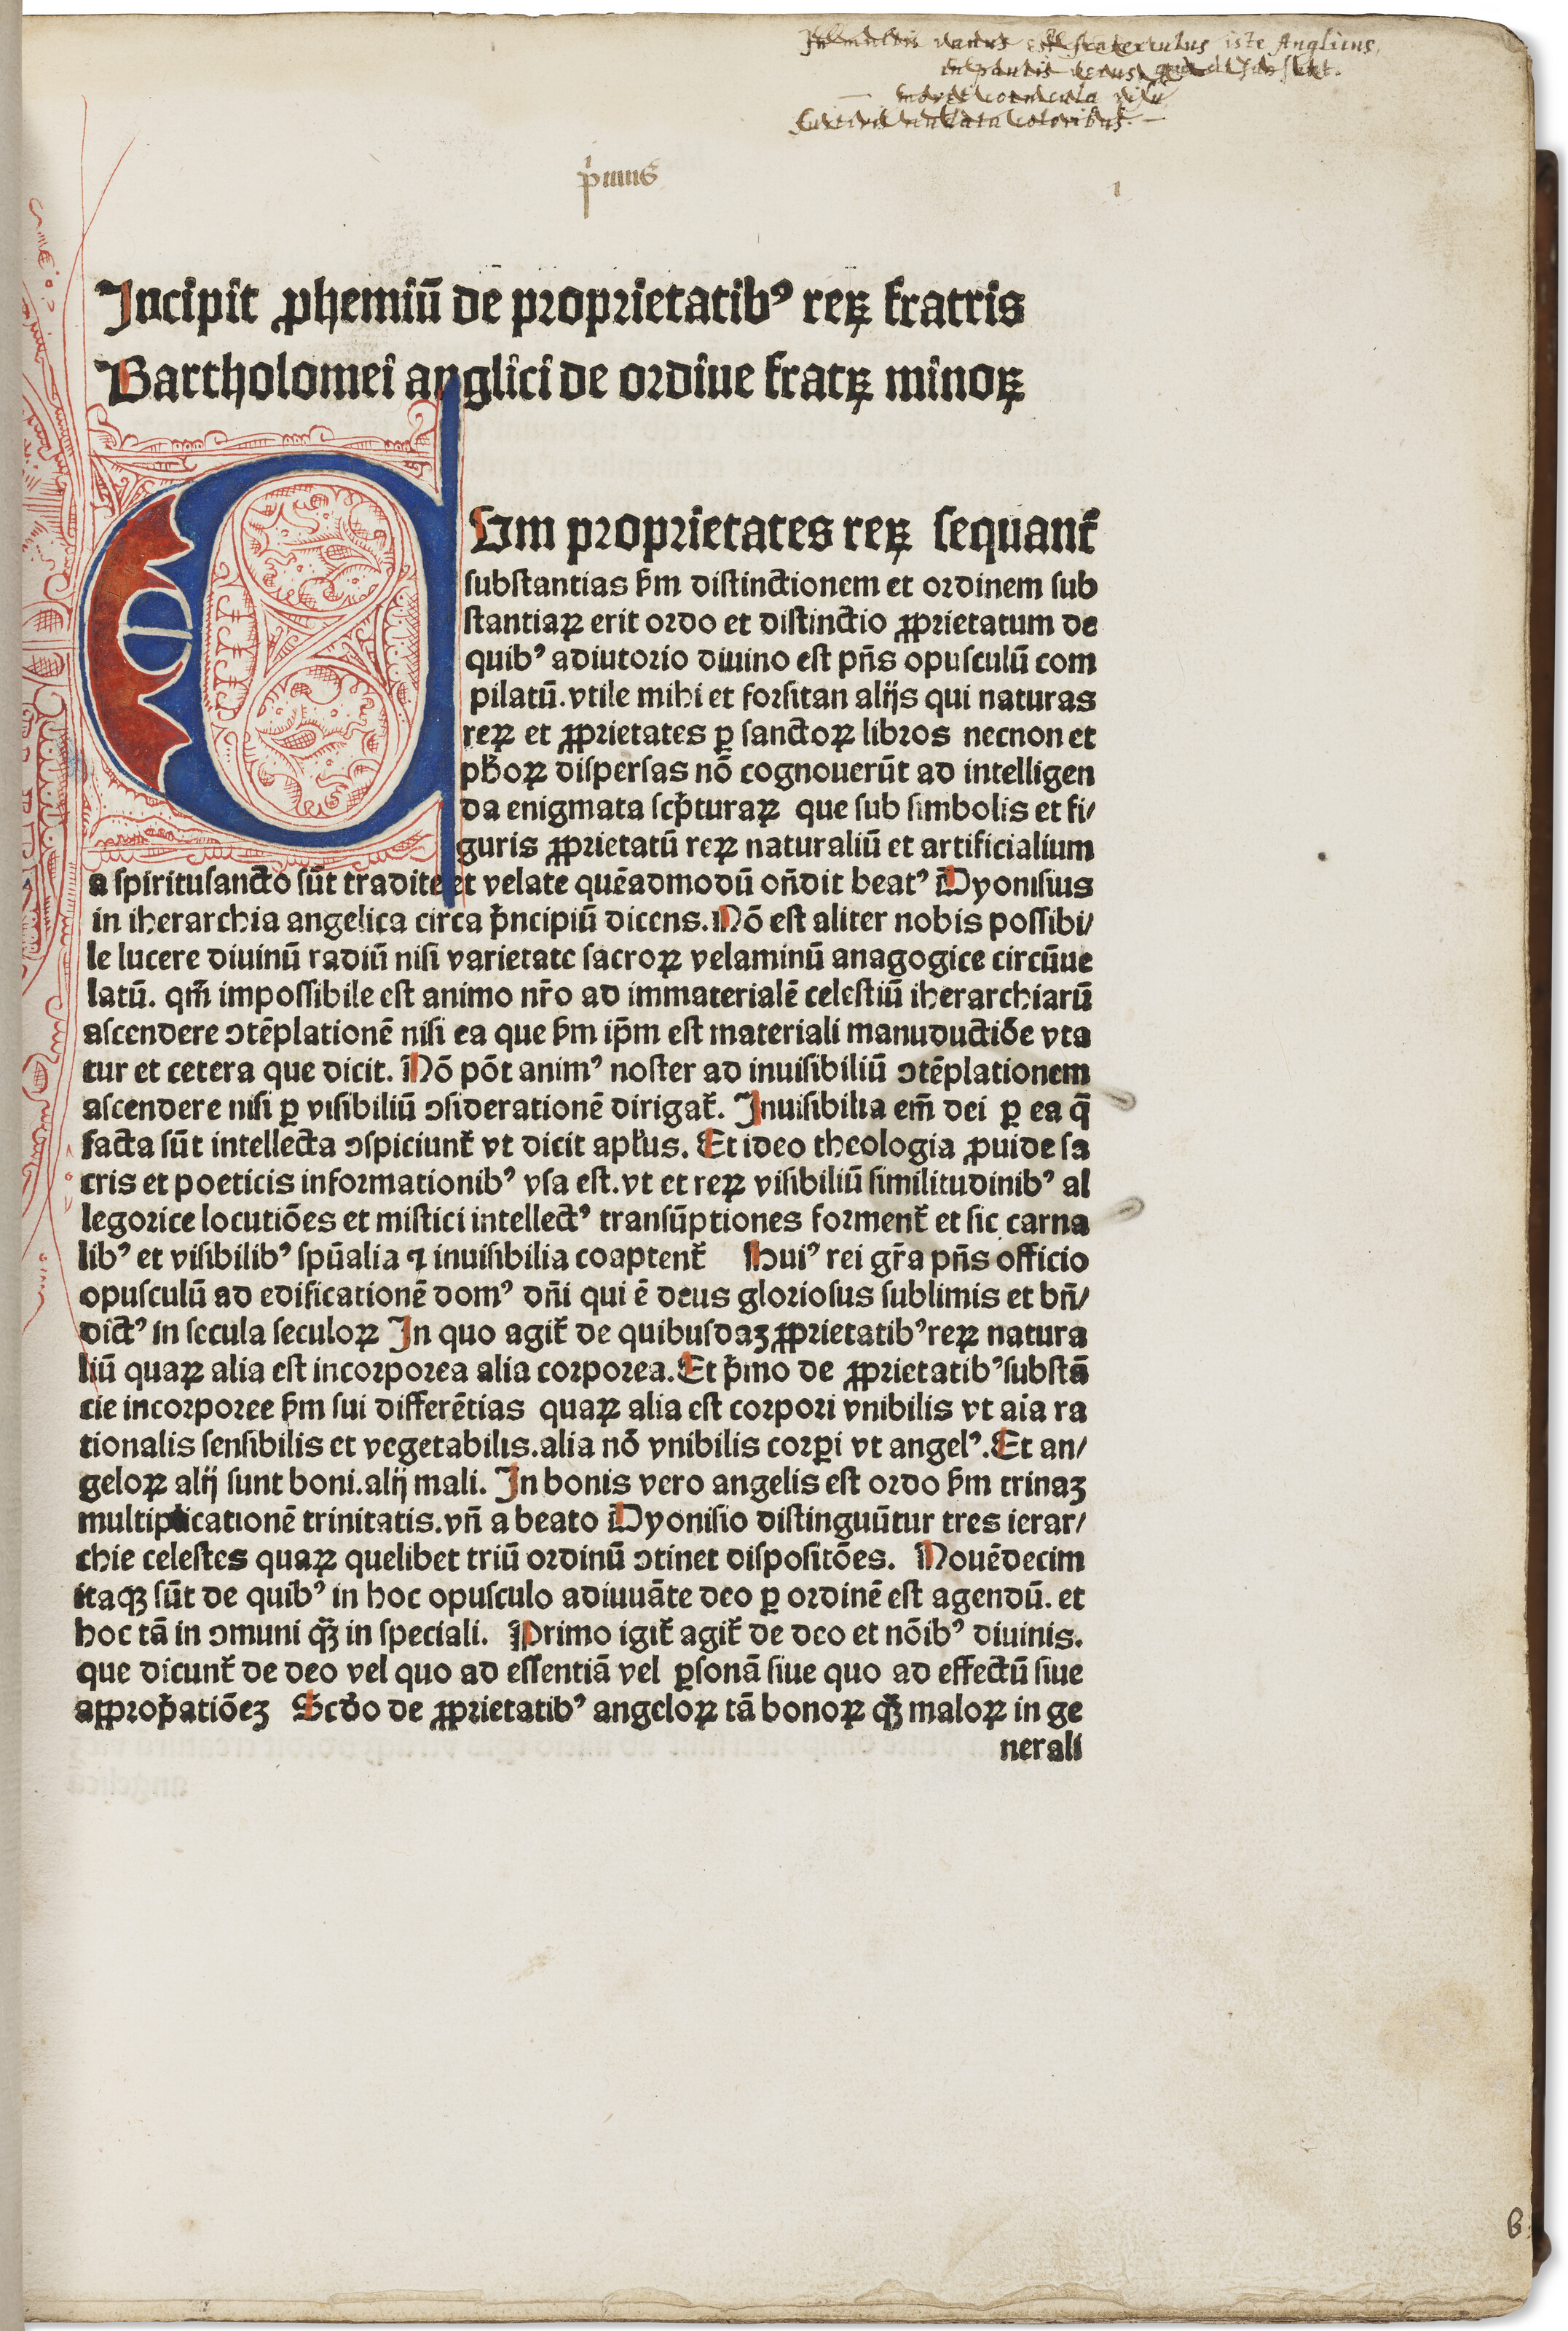 iste Anglicus,
p̄imus
1
Incipit ꝓhemiū de proprietatibꝰ reꝝ fratris
Bartholomei anglici de ordiue fratꝝ minoꝝ
CUm proprietates reꝝ sequant᷑
substantias ẜm distinctionem et ordinem sub
stantiaꝝ erit ordo et distinctio ꝓprietatum de
quibꝰ adiutorio diuino est pñs opusculū com
pilatū. vtile mihi et forsitan alijs qui naturas
reꝝ et ꝓprietates ꝑ sanctoꝝ libros necnon et
ph̄oꝝ dispersas nō cognouerūt ad intelligen
da enigmata sc̄pturaꝝ que sub simbolis et fi/
guris ꝓprietatū reꝝ naturaliū et artificialium
a spiritusancto sūt tradite et velate quēadmodū on̄dit beatꝰ Dyonisius
in iherarchia angelica circa p̄ncipiū dicens. Nō est aliter nobis possibi/
le lucere diuinū radiū nisi varietate sacroꝝ velaminū anagogice circūue
latū. qm̄ impossibile est animo nr̄o ad immaterialē celestiū iherarchiarū
ascendere ↄtēplationē nisi ea que ẜm ip̄m est materiali manuductiōe vta
tur et cetera que dicit. Nō pōt animꝰ noster ad inuisibiliū ↄtēplationem
ascendere nisi ꝑ visibiliū ↄsiderationē dirigat᷑. Inuisibilia em̄ dei ꝑ ea q̄
facta sūt intellecta ↄspiciunt᷑ vt dicit apl̄us. Et ideo theologia ꝓuide sa
cris et poeticis informationibꝰ vsa est. vt et reꝝ visibiliū similitudinibꝰ al
legorice locutiōes et mistici intellectꝰ transūptiones forment᷑ et sic carna
libꝰ et visibilibꝰ spūalia ⁊ inuisibilia coaptent᷑ Huiꝰ rei gr̄a pñs officio
opusculū ad edificationē domꝰ dn̄i qui ē deus gloriosus sublimis et bn̄/
dictꝰ in secula seculoꝝ In quo agit᷑ de quibusdaꝫ ꝓprietatibꝰ reꝝ natura
liū quaꝝ alia est incorporea alia corporea. Et p̄mo de ꝓprietatibꝰ substā
cie incorporee ẜm sui differētias quaꝝ alia est corpori vnibilis vt aīa ra
tionalis sensibilis et vegetabilis. alia nō vnibilis corꝑi vt angelꝰ. Et an/
geloꝝ alij sunt boni. alij mali. In bonis vero angelis est ordo ẜm trinaꝫ
multiplicationē trinitatis. vn̄ a beato Dyonisio distinguūtur tres ierar/
chie celestes quaꝝ quelibet triū ordinū ↄtinet dispositōes. Nouēdecim
itaqꝫ sūt de quibꝰ in hoc opusculo adiuuāte deo ꝑ ordinē est agendū. et
hoc tā in ↄmuni qꝫ̄ in speciali. Primo igit᷑ agit᷑ de deo et nōibꝰ diuinis.
que dicunt᷑ de deo vel quo ad essentiā vel ꝑsonā siue quo ad effectū siue
aꝓprop̄atiōeꝫ Scd̄o de ꝓprietatibꝰ angeloꝝ tā bonoꝝ qꝫ̄ maloꝝ in ge
nerali
6